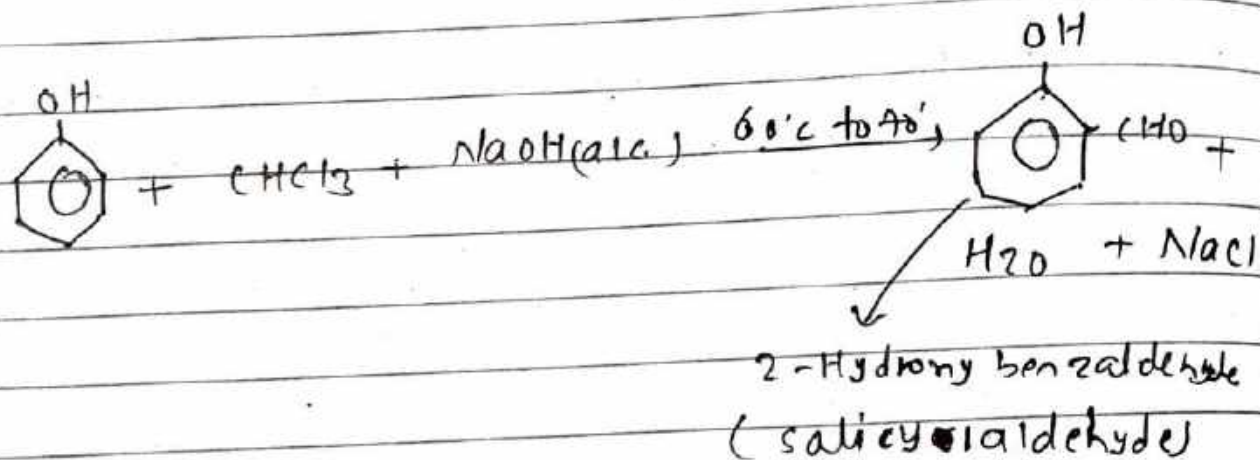 OH OH
+ CHCl3 + NaOH(alc.) 60°C to 70° CHO +
H2O + NaCl
2-Hydroxy benzaldehyde
(salicylaldehyde)